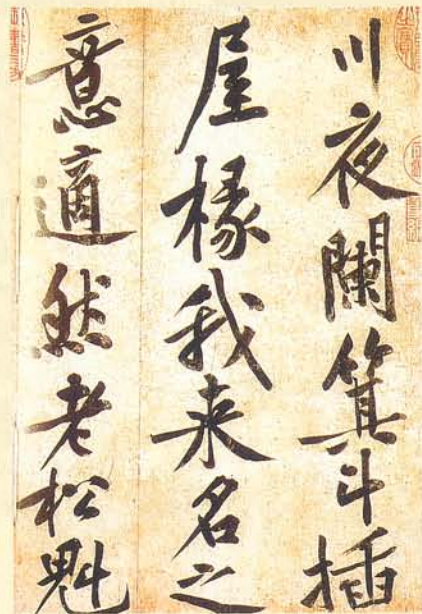 川夜闌箕斗插
屋椽我来名之
意適然老松魁